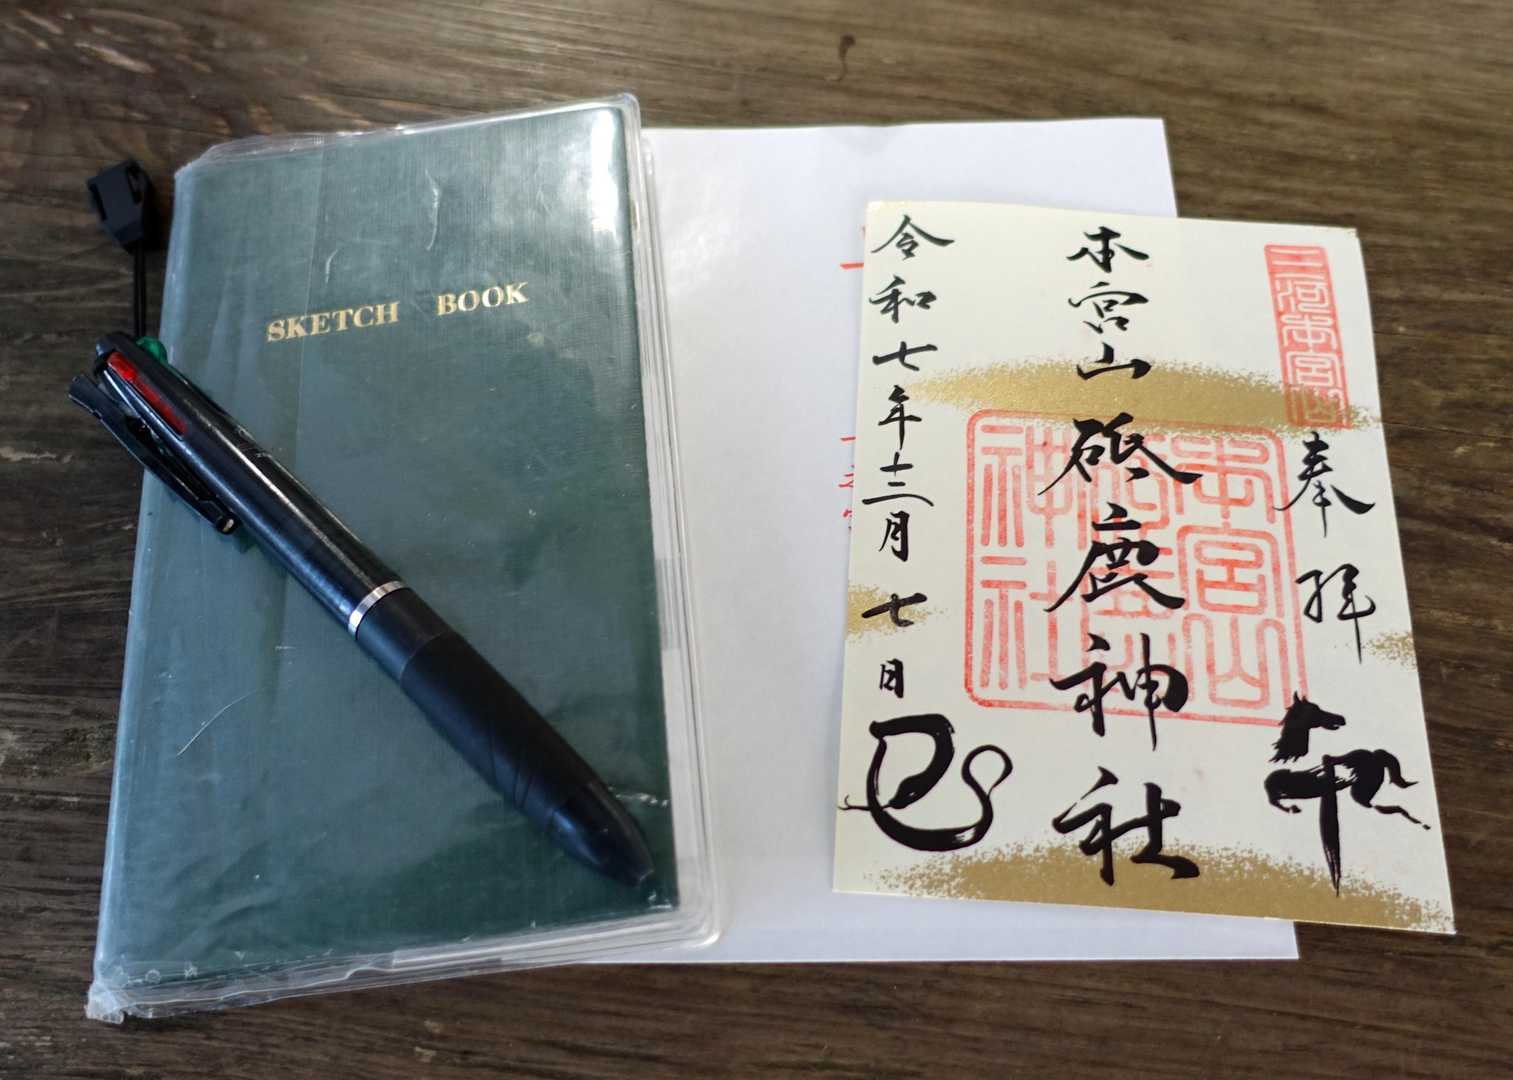 SKETCH BOOK
三河本宮山
奉拝
午
本宮山砥鹿神社
本宮山
神社
令和七年十二月七日
巳